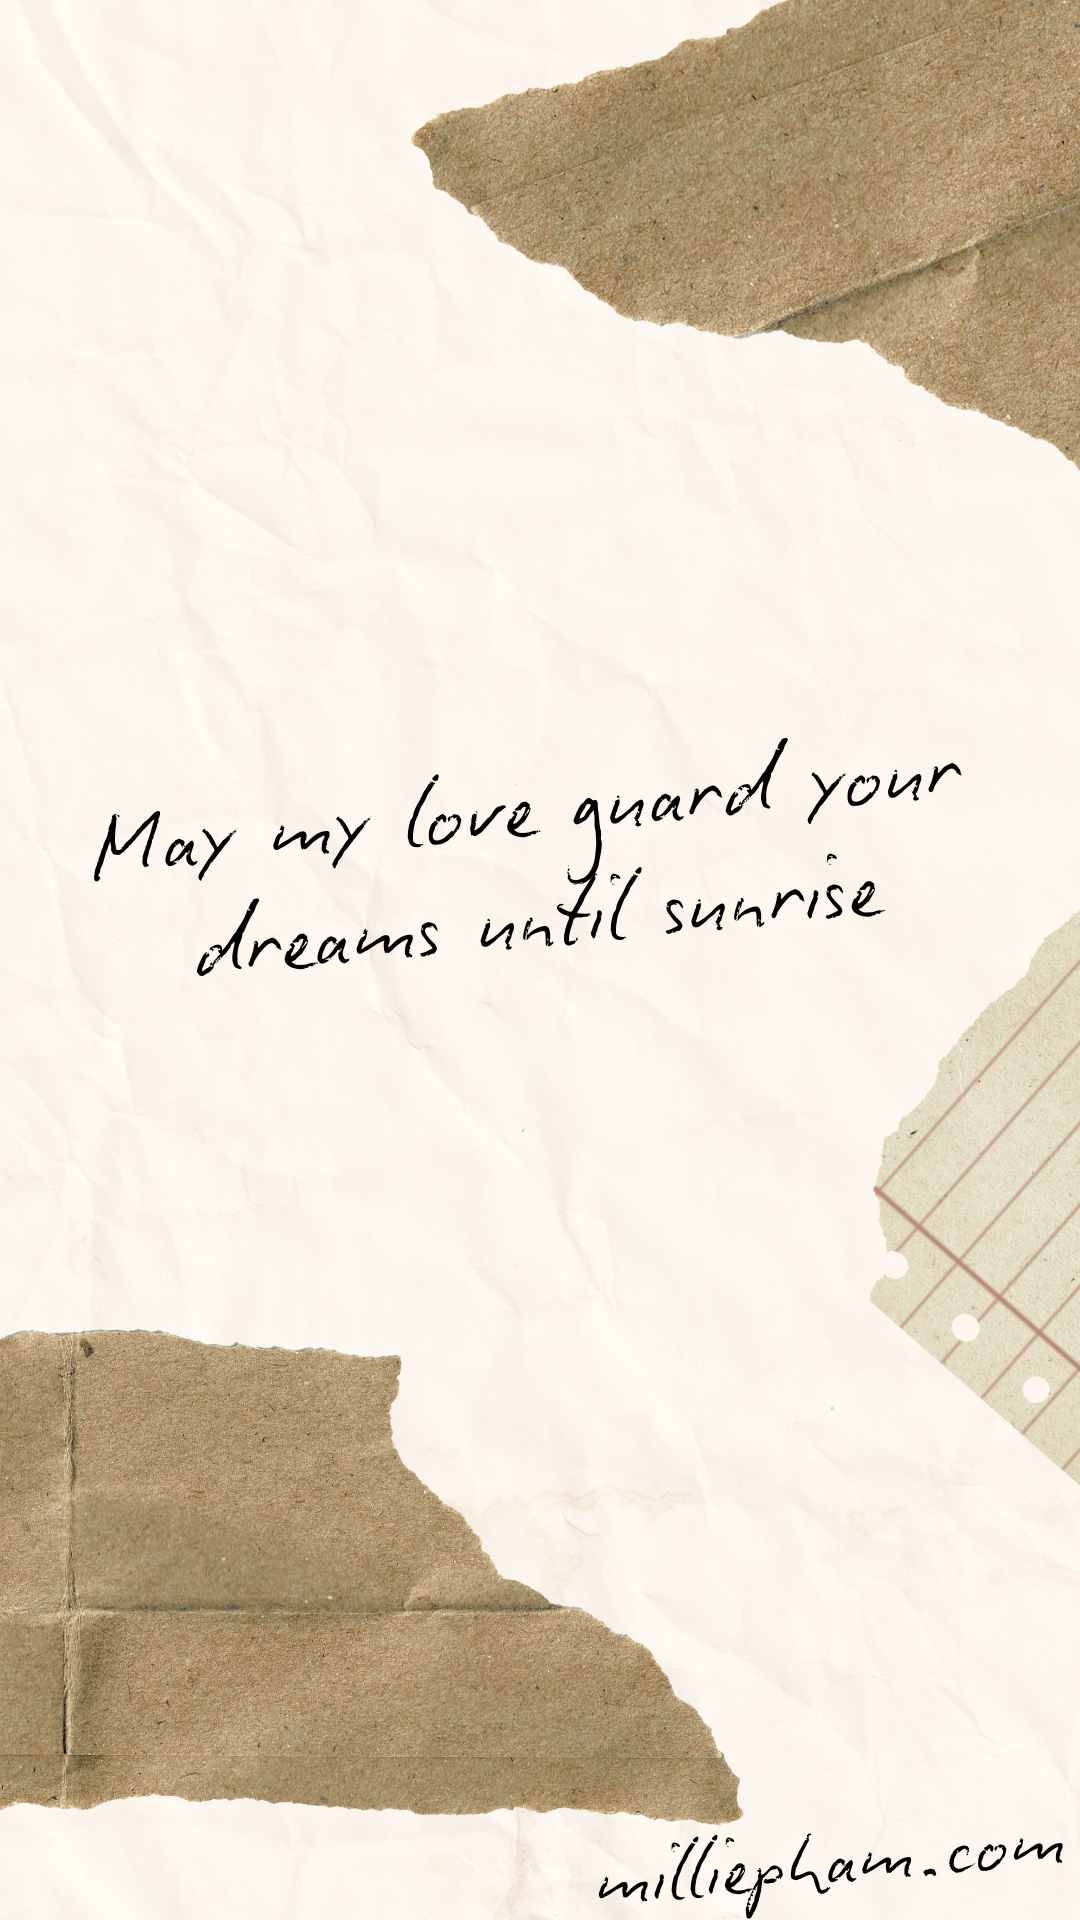 May my love guard your
dreams until sunrise
milliepham.com